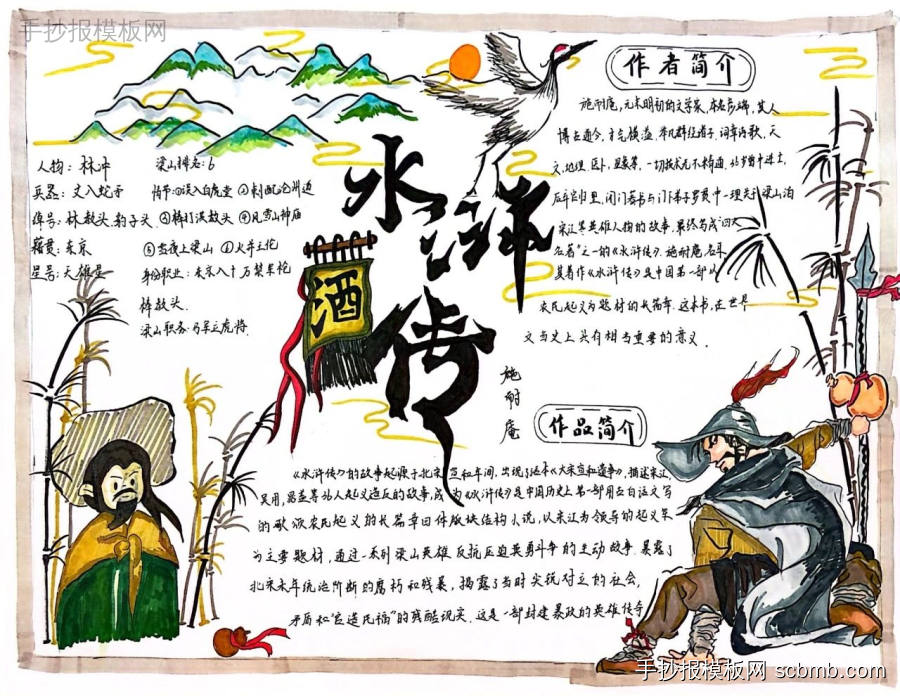 手抄报模板网
作者简介
施耐庵,元末明初的文学家,本名彦端,其人
博古通今,才气横溢,举凡群经诸子,词章诗歌,天
文、地理、医卜、星象等,一切技术无不精通,35岁曾中进士,
后弃官归里,闭门著书与门下弟子罗贯中一理关于梁山泊
宋江等英雄人物的故事,最终写成四大
名著"之一的《水浒传》。施耐庵名耳
其著作《水浒传》是中国第一部以
农民起义为题材的长篇章.这本书,在世界
文学史上具有相当重要的意义.
人物:林冲
兵器:丈八蛇矛
绰号:林教头.豹子头.
籍贯:东京
星号:天雄星
梁山排名:6
情节:①误入白虎堂 ②刺配沧州道
③棒打洪教头 ④风雪山神庙
⑤雪夜上梁山 ⑥火并王伦
身份职业:东京八十万禁军枪
棒教头.
梁山职务:马军五虎将.
水浒传
酒
施耐庵
作品简介
《水浒传》的故事起源于北宋宣和年间,出现了话本《大宋宣和遗事》,描述宋江、
吴用,晁盖等36人起义造反的故事,成为《水浒传》是中国历史上第一部用白话文写
的歌颂农民起义的长篇章回体版块结构小说,以宋江为领导的起义军
为主要题材,通过一系列梁山英雄反抗压迫英勇斗争的生动故事.暴露了
北宋末年统治阶级的腐朽和残暴,揭露了当时尖锐对立的社会,
矛盾和"官逼民反"的残酷现实.这是一部封建暴政的英雄传奇
手抄报模板网 scbmb.com